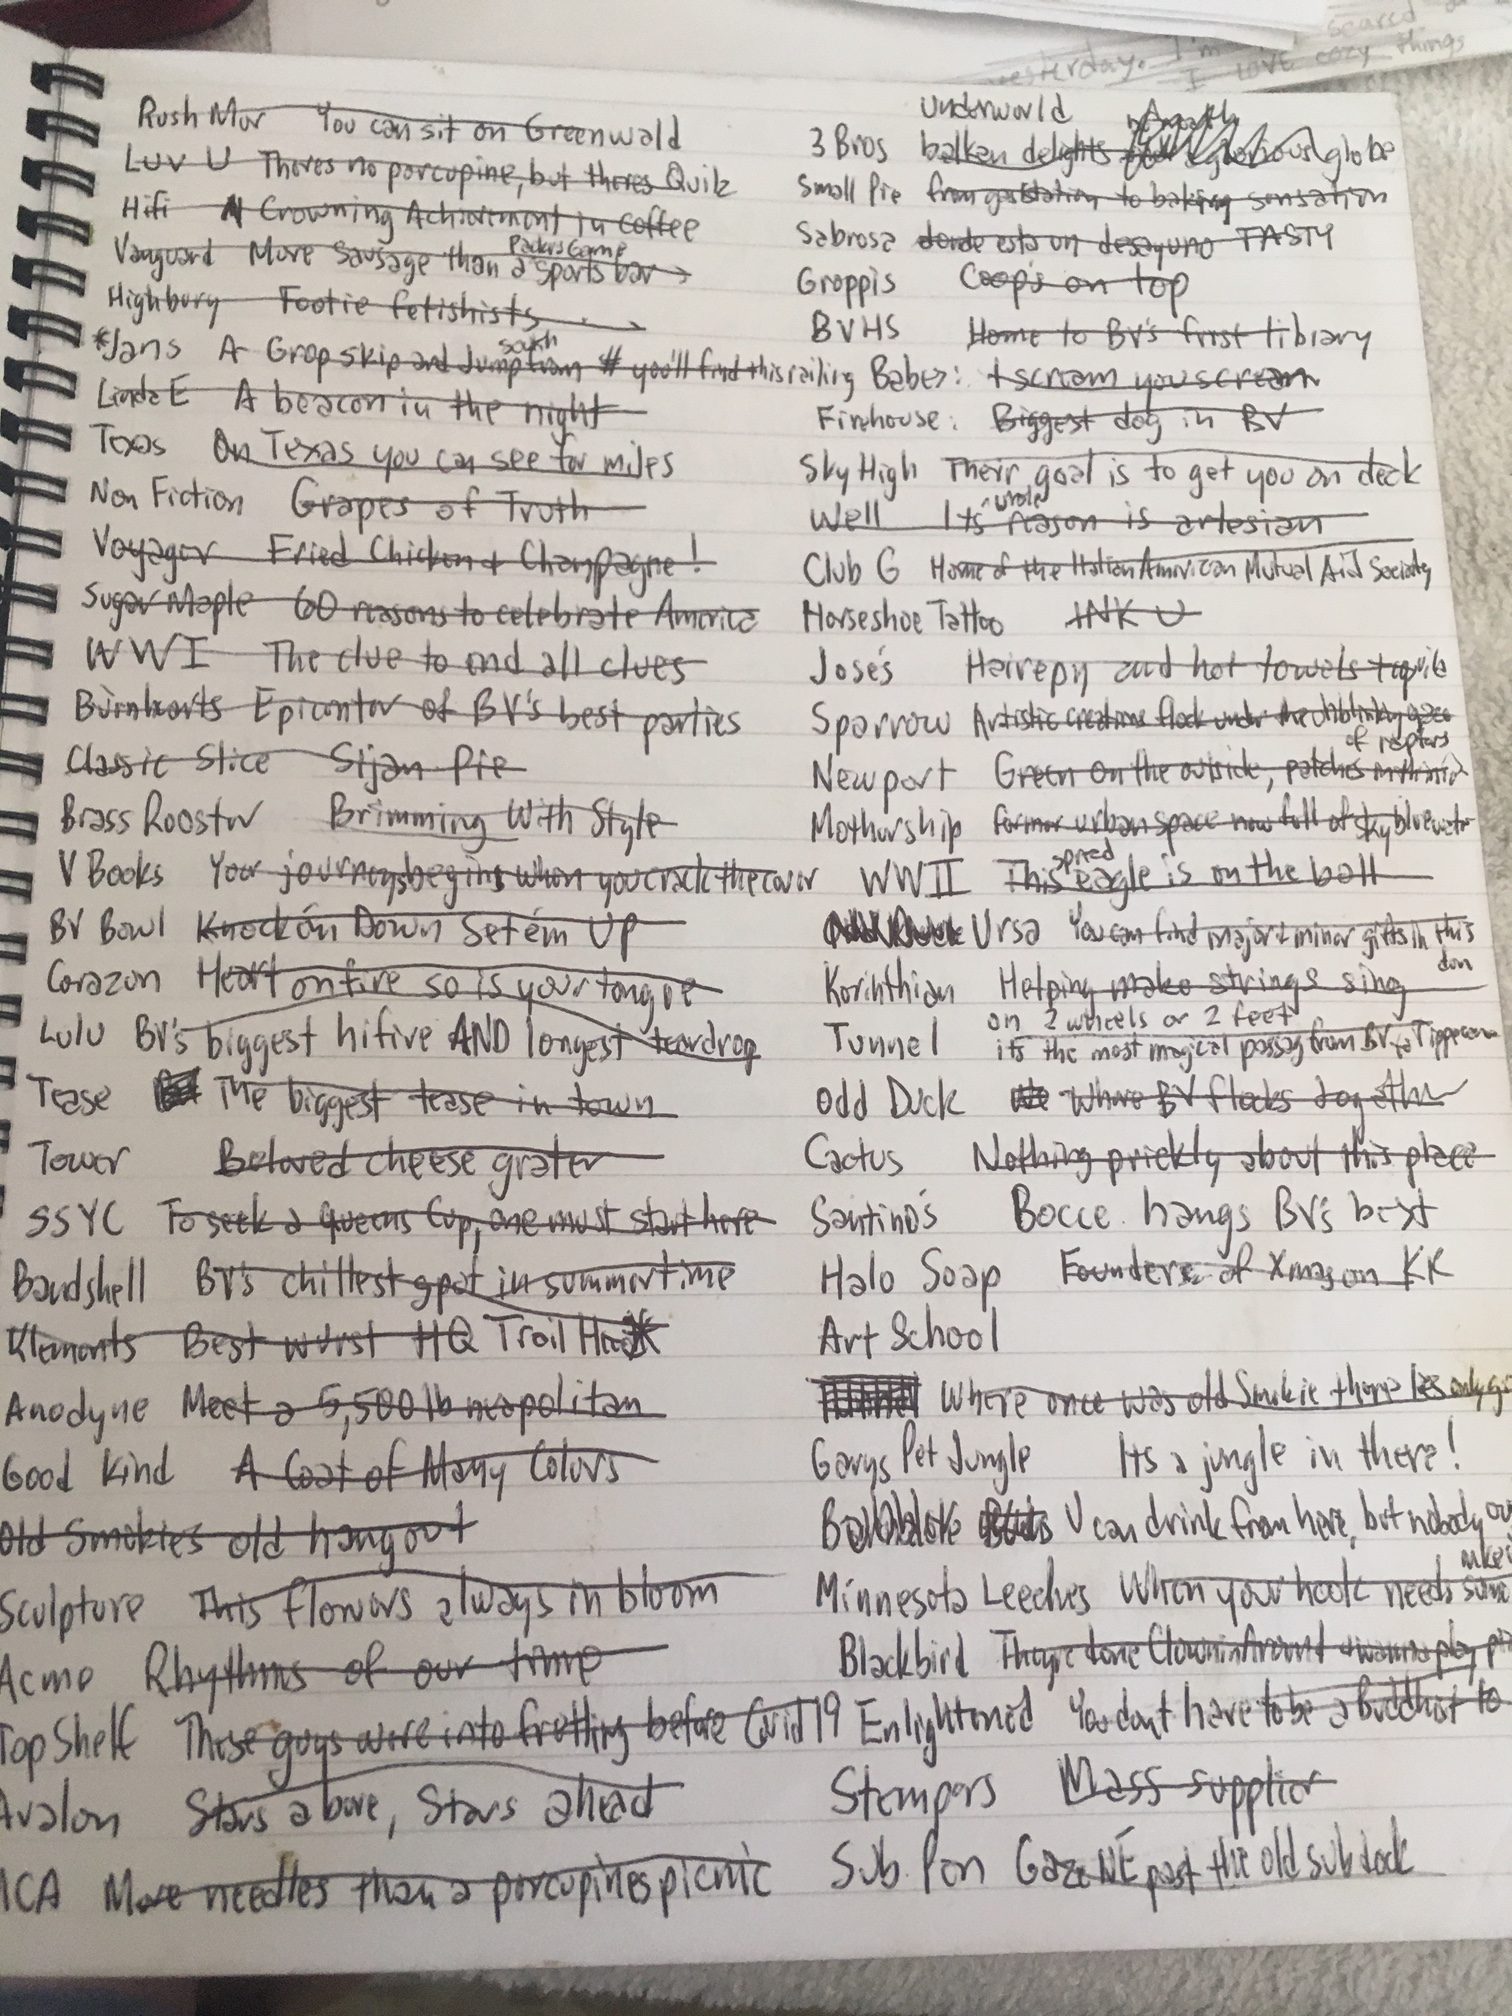 yesterday. I'm scared
I love cozy things
Rush Mor You can sit on Greenwald
Luv U Theres no porcupine, but theres Quilz
Hifi A Crowning Achievement in coffee
Packers Game
Vanguard More Sausage than a sports bar
Highbury Footie fetishists
south
*Jans A Grop skip and Jump from # you'll find this railing
Linda E A beacon in the night
Texas On Texas you can see for miles
Non Fiction Grapes of Truth
Voyager Fried Chicken & Champagne!
Sugar Maple 60 reasons to celebrate America
WWI The clue to end all clues
Burnhearts Epicenter of BV's best parties
Classic Slice Sijan Pie
Brass Rooster Brimming With Style
V Books Your journeys begins when you crack the cover
BV Bowl Knock ém Down Set ém Up
Corazon Heart on fire so is your tongue
Lulu BV's biggest hifive AND longest teardrop
Tease The biggest tease in town
Tower Beloved cheese grater
SSYC To seek a Queens Cup, one must start here
Bandshell BV's chillest spot in summertime
Klements Best wurst HQ Trail
Anodyne Meet a 5,500 lb neapolitan
Good Kind A Coat of Many Colors
Old Smokies old hangout
Sculpture This flowers always in bloom
Acme Rhythms of our time
Top Shelf These guys were into fretting before Covid 19
Avalon Stars above, Stars ahead
ACA More needles than a porcupines picnic
Underworld
3 Bros balkan delights glorious globe
Small Pie from gas station to baking sensation
Sabrosa donde esta un desayuno TASTY
Groppis Coop's on top
BVHS Home to BV's first library
Babes: I scream you scream
Firehouse: Biggest dog in BV
Sky High Their goal is to get you on deck
whole
Well Its reason is artesian
Club G Home of the Italian American Mutual Aid Society
Horseshoe Tattoo INK U
Jose's and hot towels
Sparrow Artistic creations flock under the unblinking eyes
of raptors
Newport Green on the outside, patches
Mothership former urban space now full of sky blue water
spried
WWII This eagle is on the ball
Ursa You can find major & minor gifts in this
den
Korinthian Helping make strings sing
on 2 wheels or 2 feet
Tunnel its the most magical passag from BV to Tippecanoe
Odd Duck Where BV flocks together
Cactus Nothing prickly about this place
Santino's Bocce hangs BV's best
Halo Soap Founders of Xmas on KK
Art School
Where once was old Smokie there is only
Garys Pet Jungle Its a jungle in there!
U can drink from here, but nobody
Minnesota Leeches When your hook needs some
Blackbird Theyre done Clownin Around & wanna play
Enlightened You dont have to be a Buddhist to
Stempers Mass supplier
Sub. Pen Gaze NE past the old sub dock